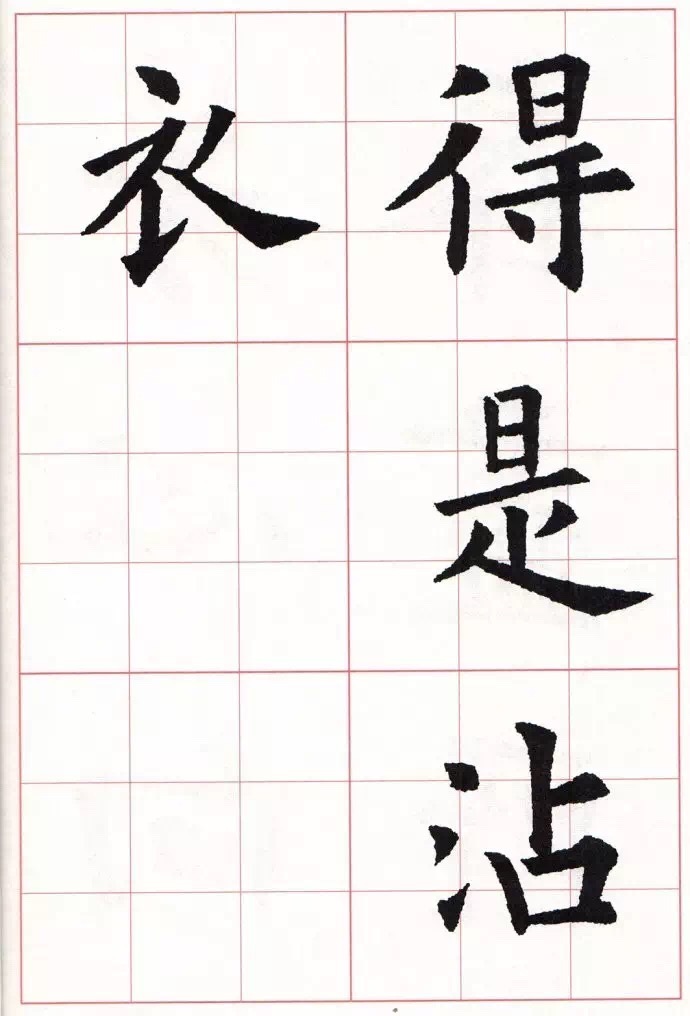 得是沾
衣